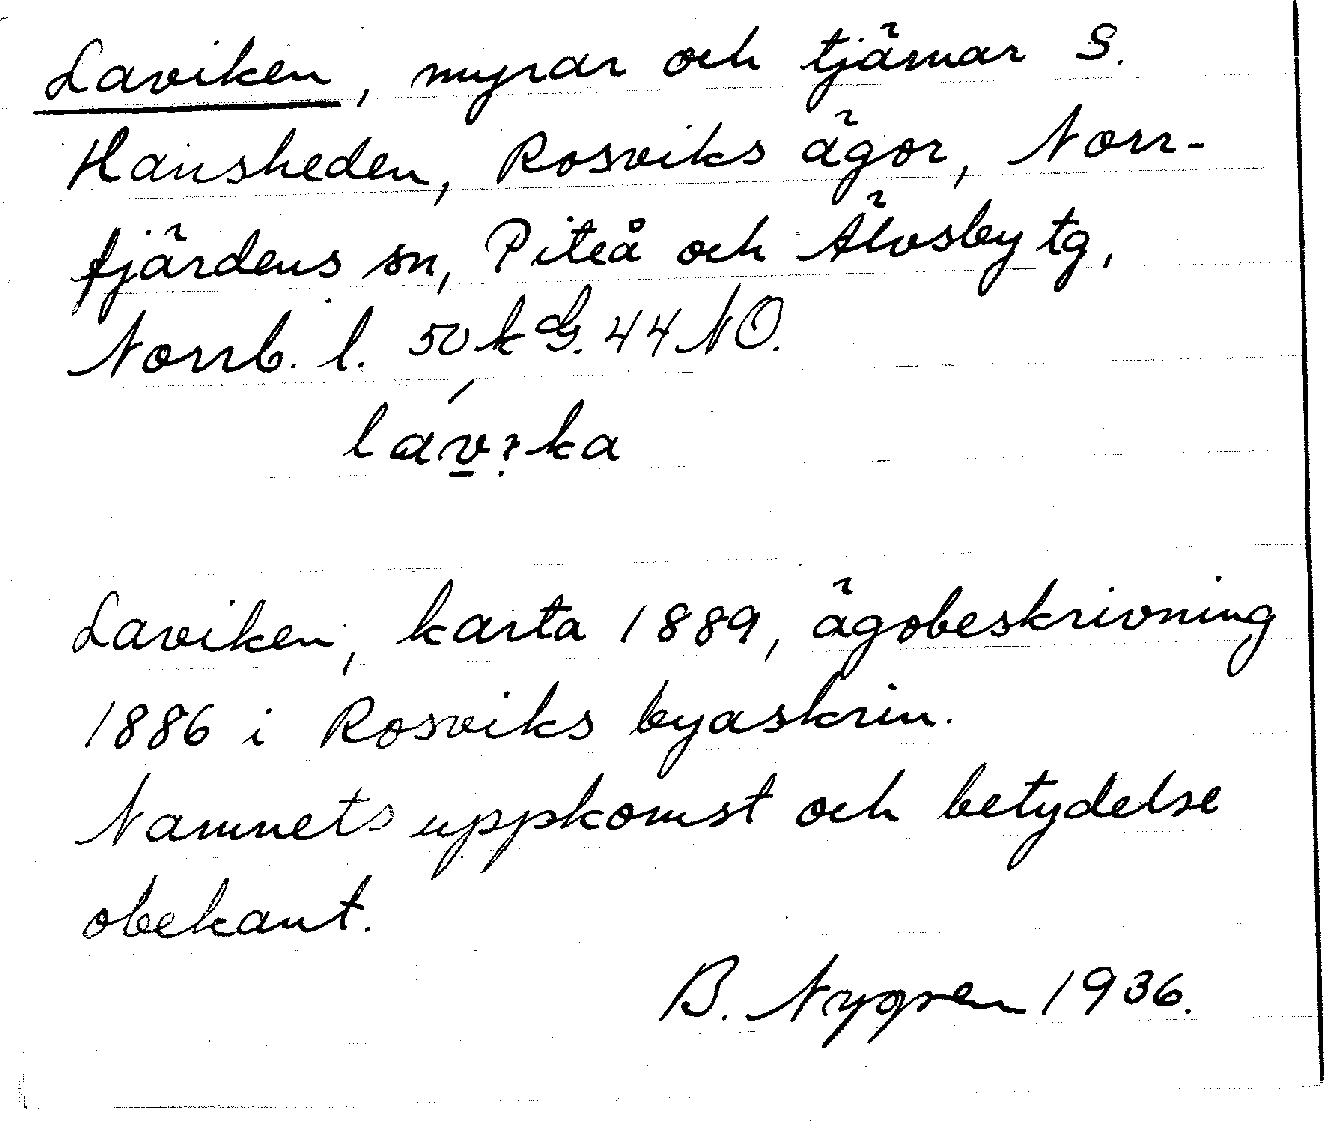 Laviken, myrar och tjärnar S.
Hansheden, Rosviks ägor, Norr-
fjärdens sn, Piteå och Älvsby tg,
Norrb. l. 50 k G. 44 NO.
lav̲ika
Laviken, karta 1889, ägobeskrivning
1886 i Rosviks byaskrin.
Namnets uppkomst och betydelse
obekant.
B. Nygren 1936.